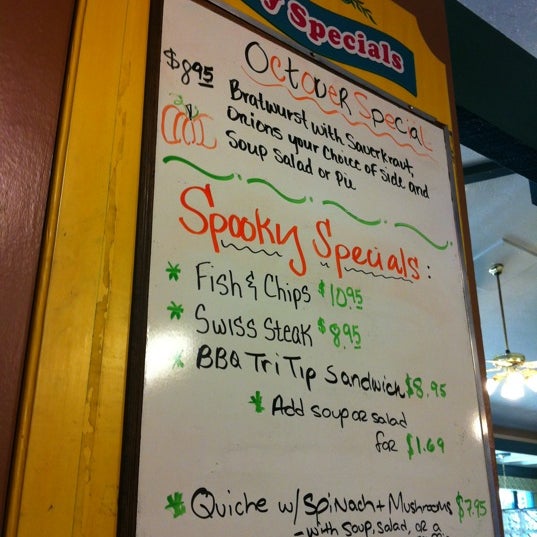 Specials
October Special
$8.95
Bratwurst with Sauerkraut,
Onions your choice of side and
Soup Salad or Pie
Spooky Specials:
* Fish & Chips $10.95
* Swiss Steak $8.95
* BBQ Tri Tip Sandwich $8.95
* Add soup or salad
for $1.69
* Quiche w/ Spinach + Mushrooms $7.95
- with soup, salad, or a